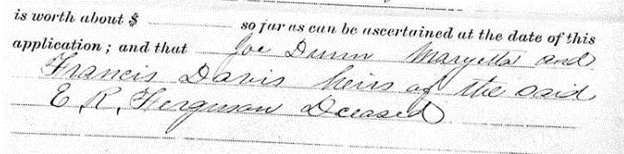 is worth about $ so far as can be ascertained at the date of this
application; and that Joe Dunn Maryella and
Francis Davis heirs of the said
E. R. Ferguson Dceased